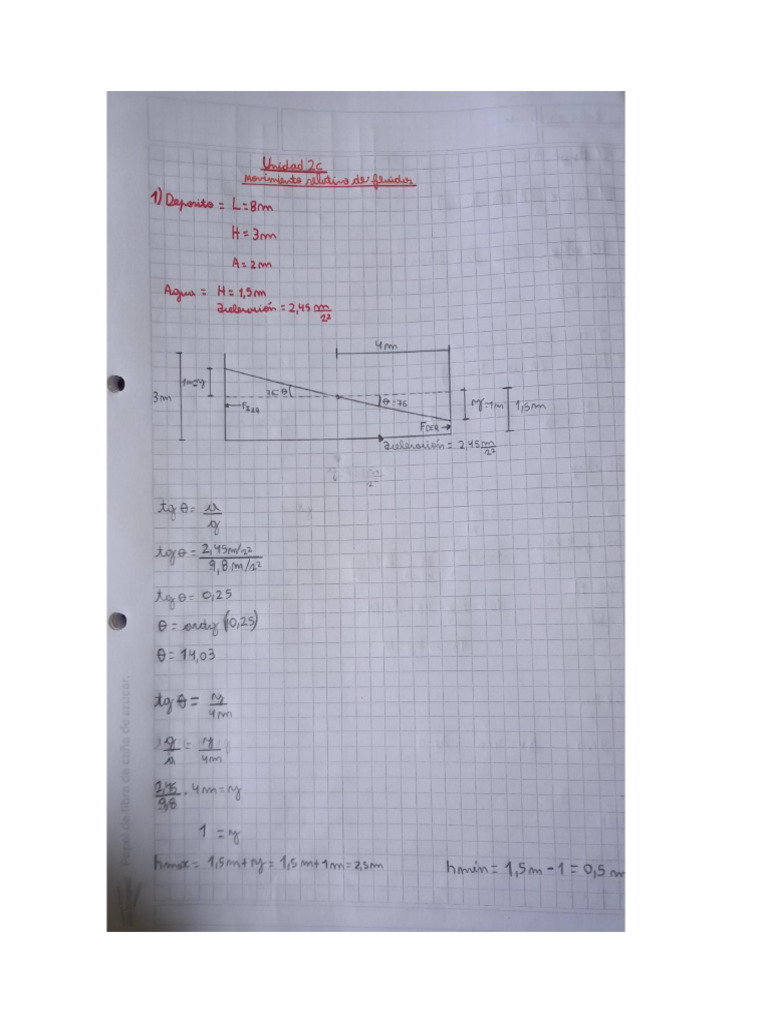 Unidad 2c
Movimiento relativo de fluidos
1) Deposito = L=8m
H=3m
A=2m
Agua = H=1,5m
aceleración = 2,45 m/s²
4m
3m
1m=y
θ
θ=76
y=1m
1,5m
aceleración = 2,45 m/s²
tg θ = a/g
tg θ = 2,45m/s² / 9,8 m/s²
tg θ = 0,25
θ = arctg (0,25)
θ = 14,03
tg θ = y/4m
g/a = y/4m
2,45/9,8 . 4m = y
1 = y
hmax = 1,5m+y = 1,5m+1m = 2,5m
hmín = 1,5m-1 = 0,5 m
Papel de fibra de caña de azucar.